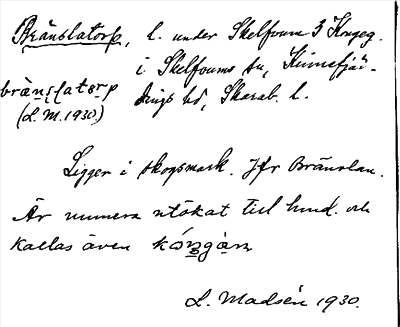 Bränslatorp, l. under Skelfvum 3 Krgeg.
i Skelfvums sn, Kinnefjär-
dings hd, Skarab. l.
bränslatorp
(L.M. 1930)
Ligger i skogsmark. Jfr Bränslan.
Är numera utökat till hmd. och
kallas även kóngárn
L. Madsén 1930.